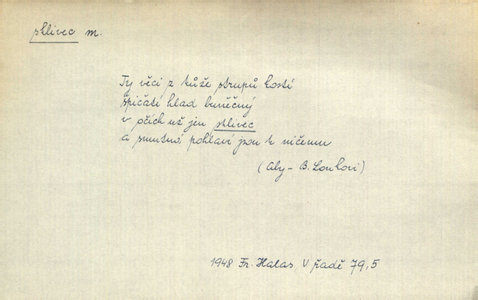 sklivec m.
Ty věci z kůže strupů kostí
špičatí hlad buněčný
v očích už jen sklivec
a smutná pohlaví jsou k ničemu
(Aby – B. Loukovi)
1948 Fr. Halas, V řadě 79,5